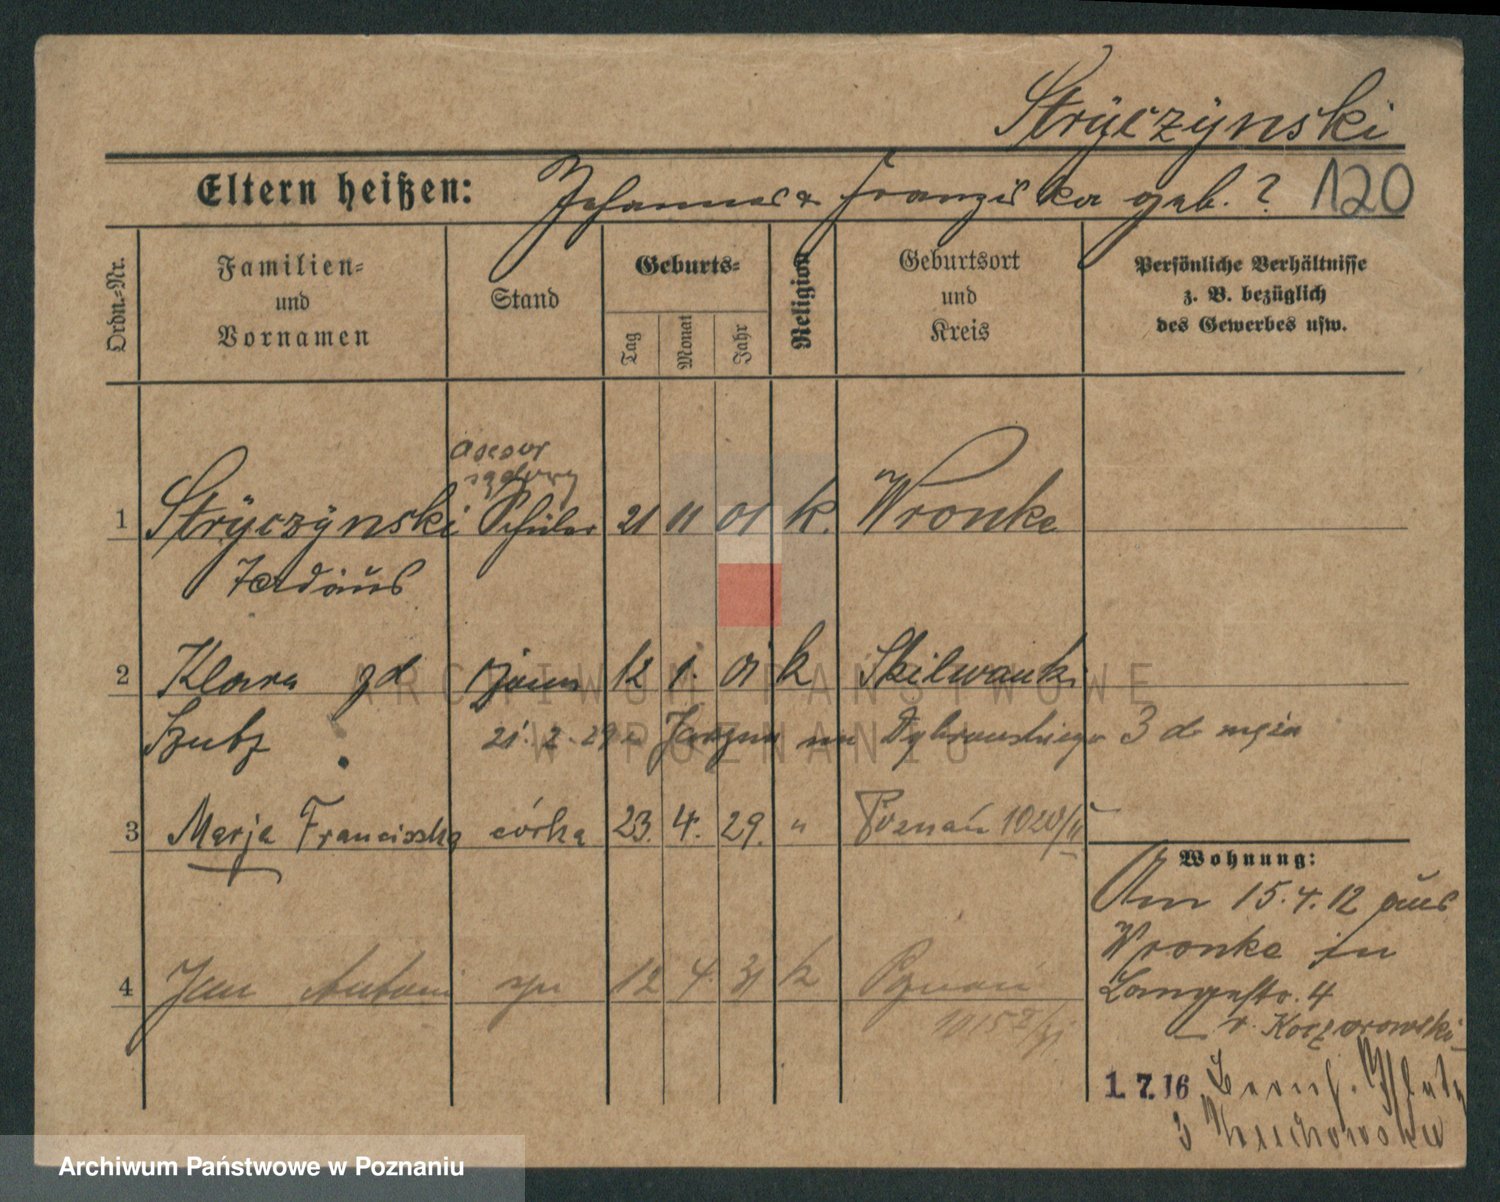 Strÿczÿnski
Eltern heißen: Johannes & Franziska geb. ? 120
Ordn.=Nr.
Familien=
und
Vornamen
Stand
Geburts=
Tag
Monat
Jahr
Religion
Geburtsort
und
Kreis
Persönliche Verhältnisse
z. B. bezüglich
des Gewerbes usw.
asesor
sądowy
1 Strÿczÿnski Schüler 21 11 01 k. Wronke
Tadäus
2 Klara żona 12 1. 01 k
Szubz 21. 2. 29 Dąbrowskiego 3 do męża
3 Marja Franciszka córka 23. 4. 29. " Poznań 1020/II
4 Jan Antoni syn 12 4. 31 k Poznań
Wohnung:
Am 15.4.12 aus
Wronke in
Langestr. 4
b. Koczorowski
1. 7. 16
ARCHIWUM PAŃSTWOWE
W POZNANIU
Archiwum Państwowe w Poznaniu